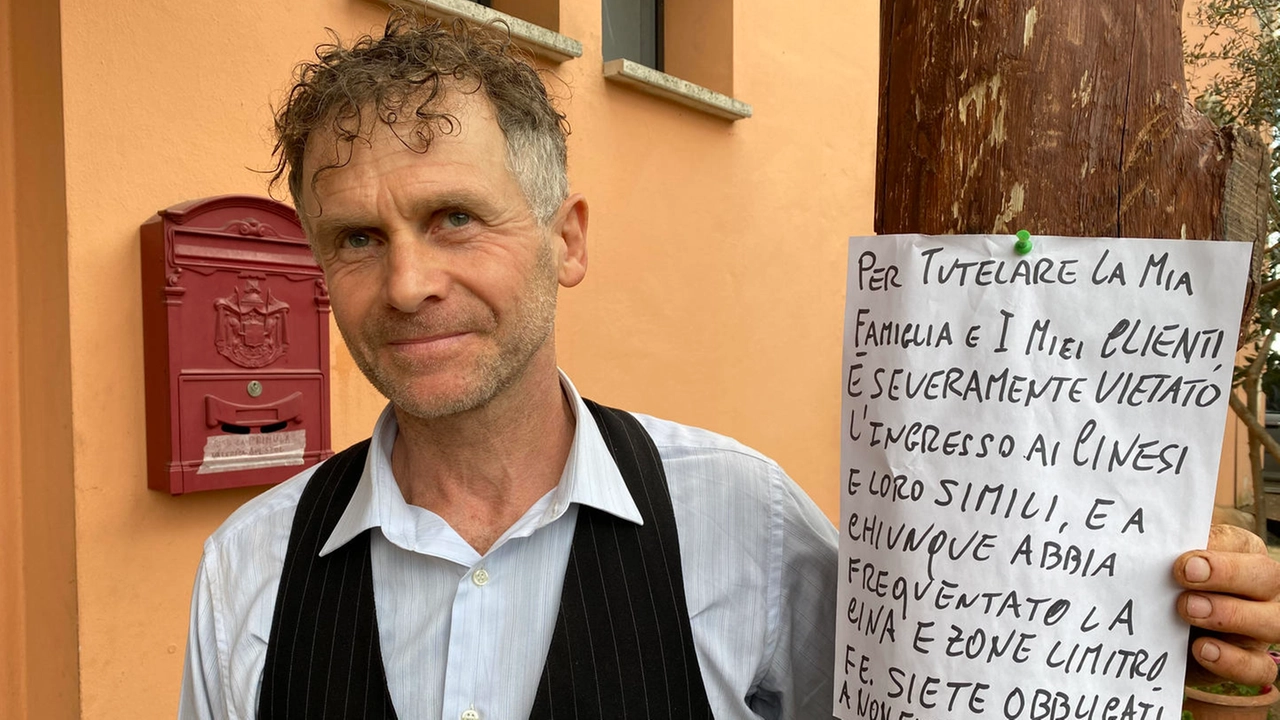 PER TUTELARE LA MIA
FAMIGLIA E I MIEI CLIENTI,
È SEVERAMENTE VIETATO
L'INGRESSO AI CINESI
E LORO SIMILI, E A
CHIUNQUE ABBIA
FREQUENTATO LA
CINA E ZONE LIMITRO
FE. SIETE OBBLIGATI
A NON